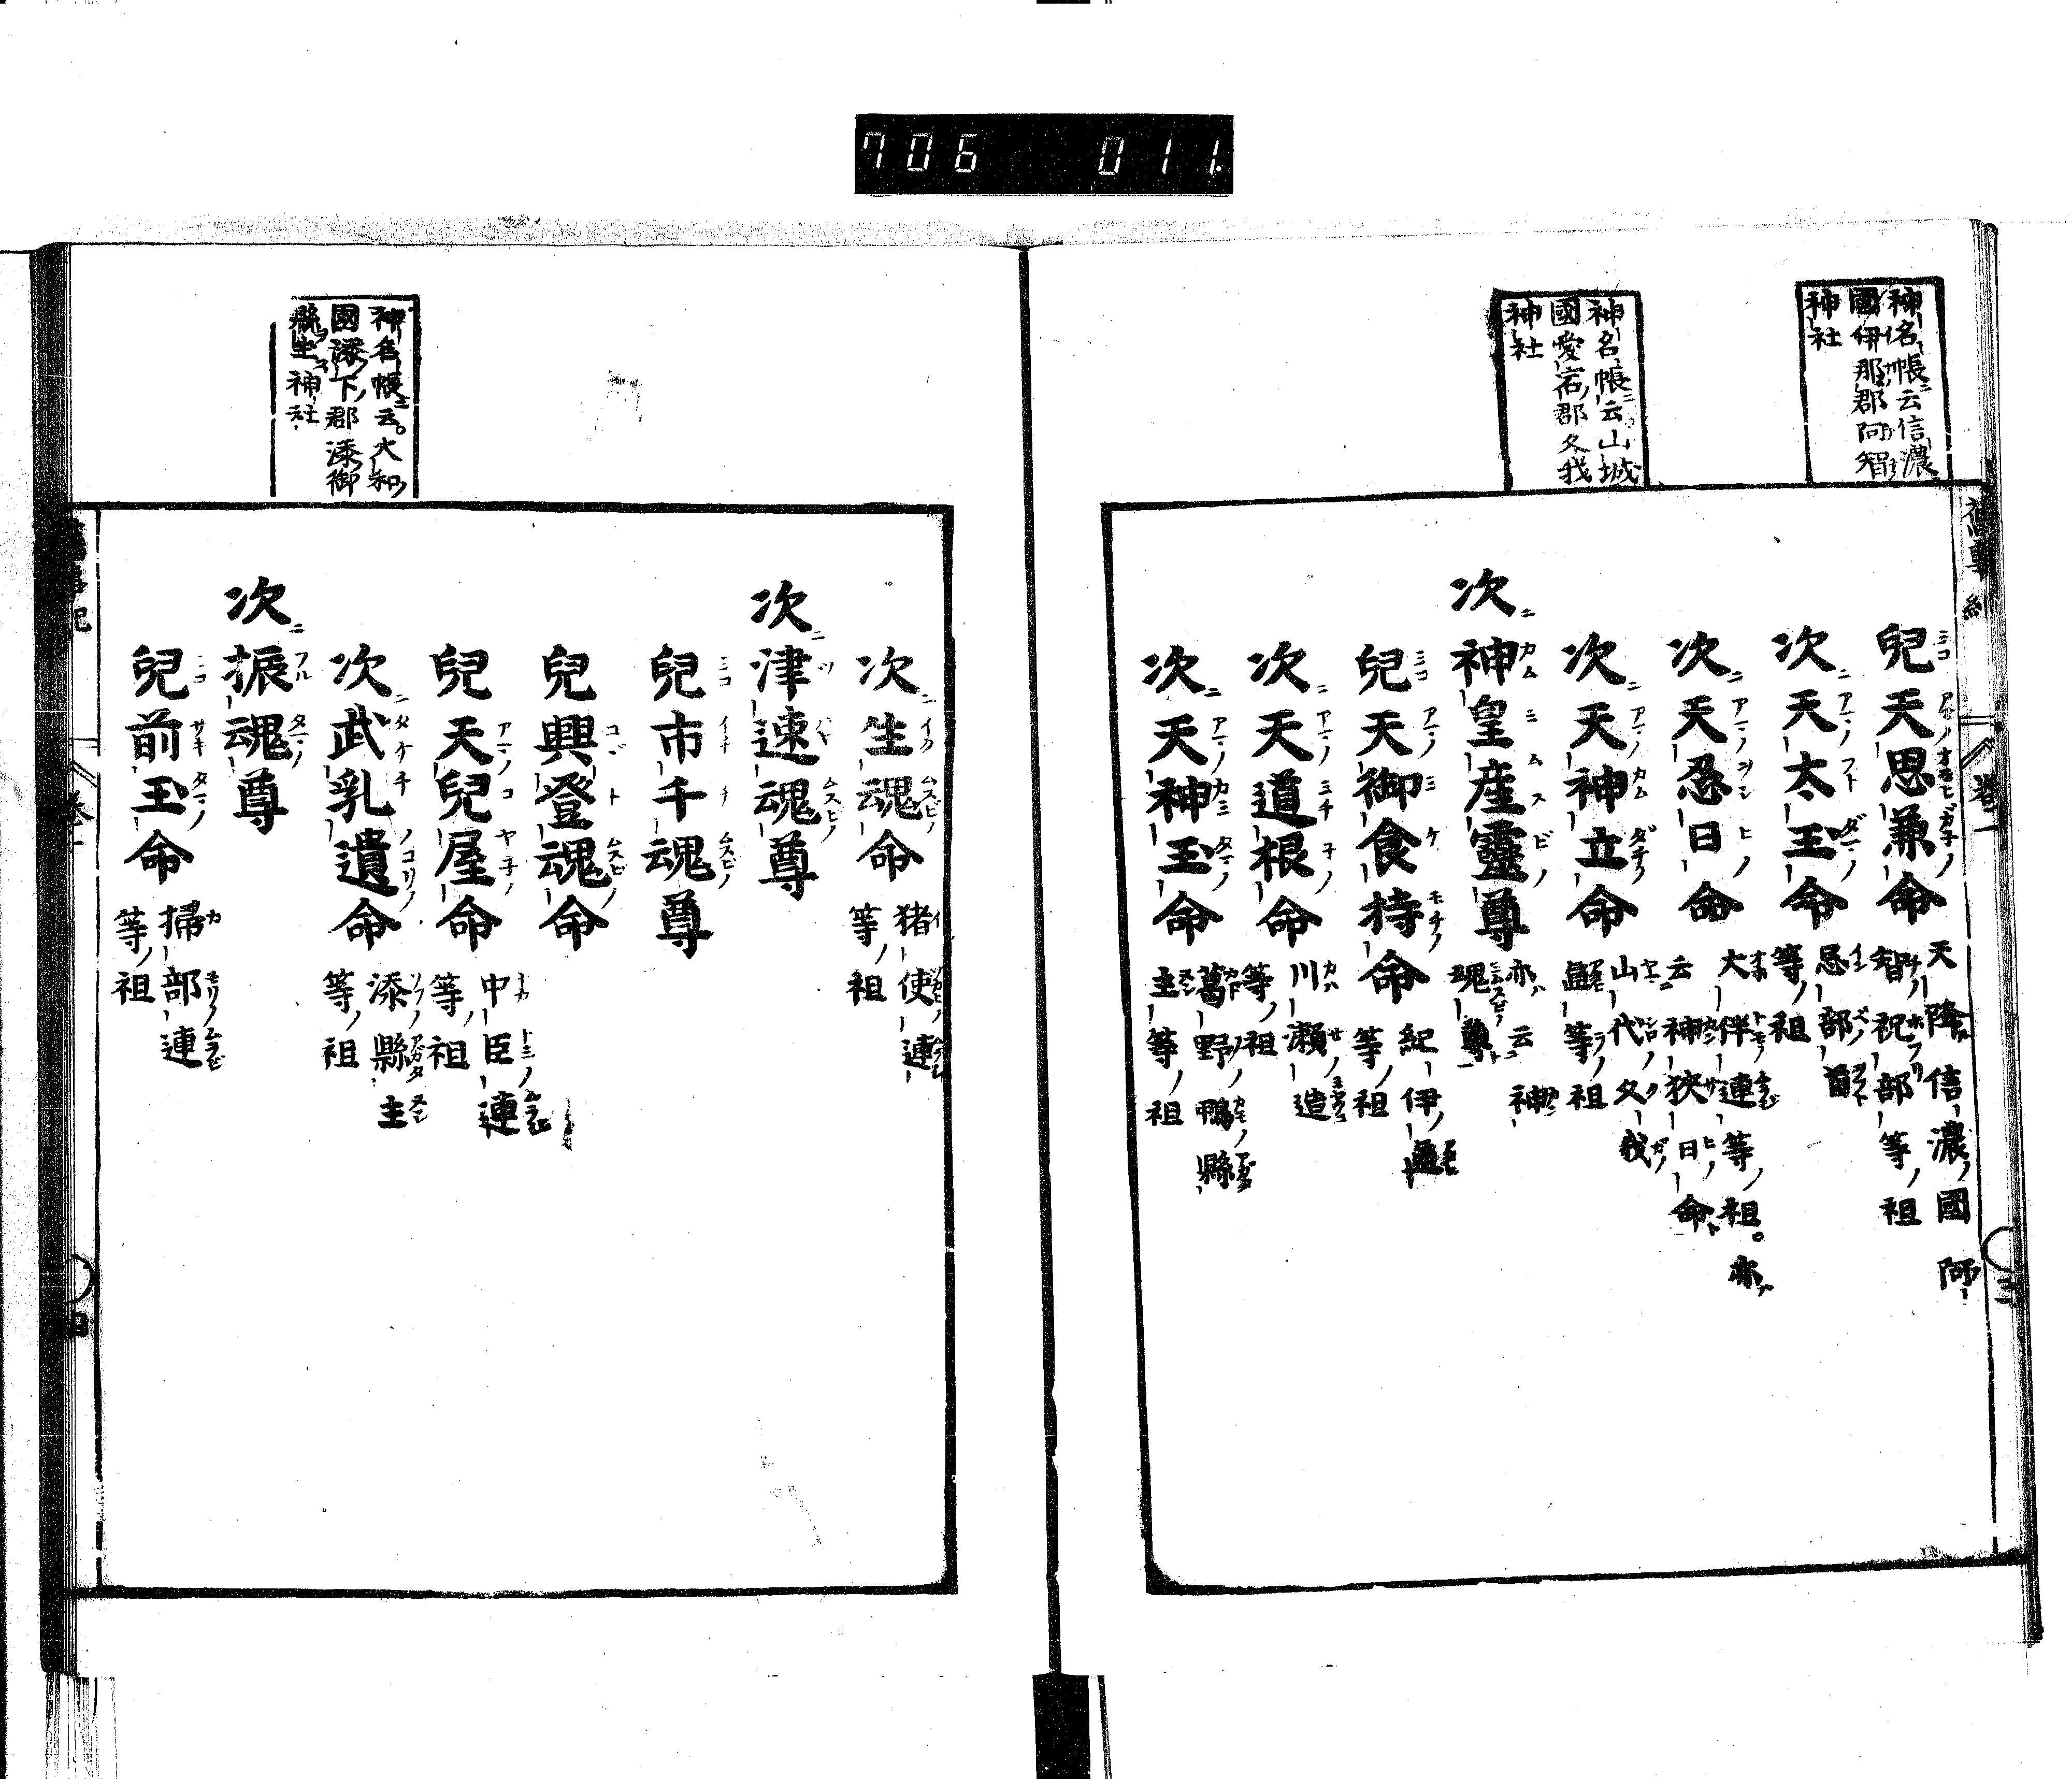 706 011.
神名帳云信濃
國伊那郡阿智
神社
神名帳云山城
國愛宕郡久我
神社
兒天思兼命 天降信濃國阿
智祝部等祖
次天太玉命 忌部首
等祖
次天忍日命 大伴連等祖。亦
云神狹日命
次天神立命 山代久我
直等祖
次神皇産靈尊 亦云神
魂尊
兒天御食持命 紀伊直
等祖
次天道根命 川瀬造
等祖
次天神玉命 葛野鴨縣
主等祖
神名帳云。大和
國添下郡添御
縣坐神社
次生魂命 猪使連
等祖
次津速魂尊
兒市千魂尊
兒興登魂命
兒天兒屋命 中臣連
等祖
次武乳遺命 添縣主
等祖
次振魂尊
兒前玉命 掃部連
等祖